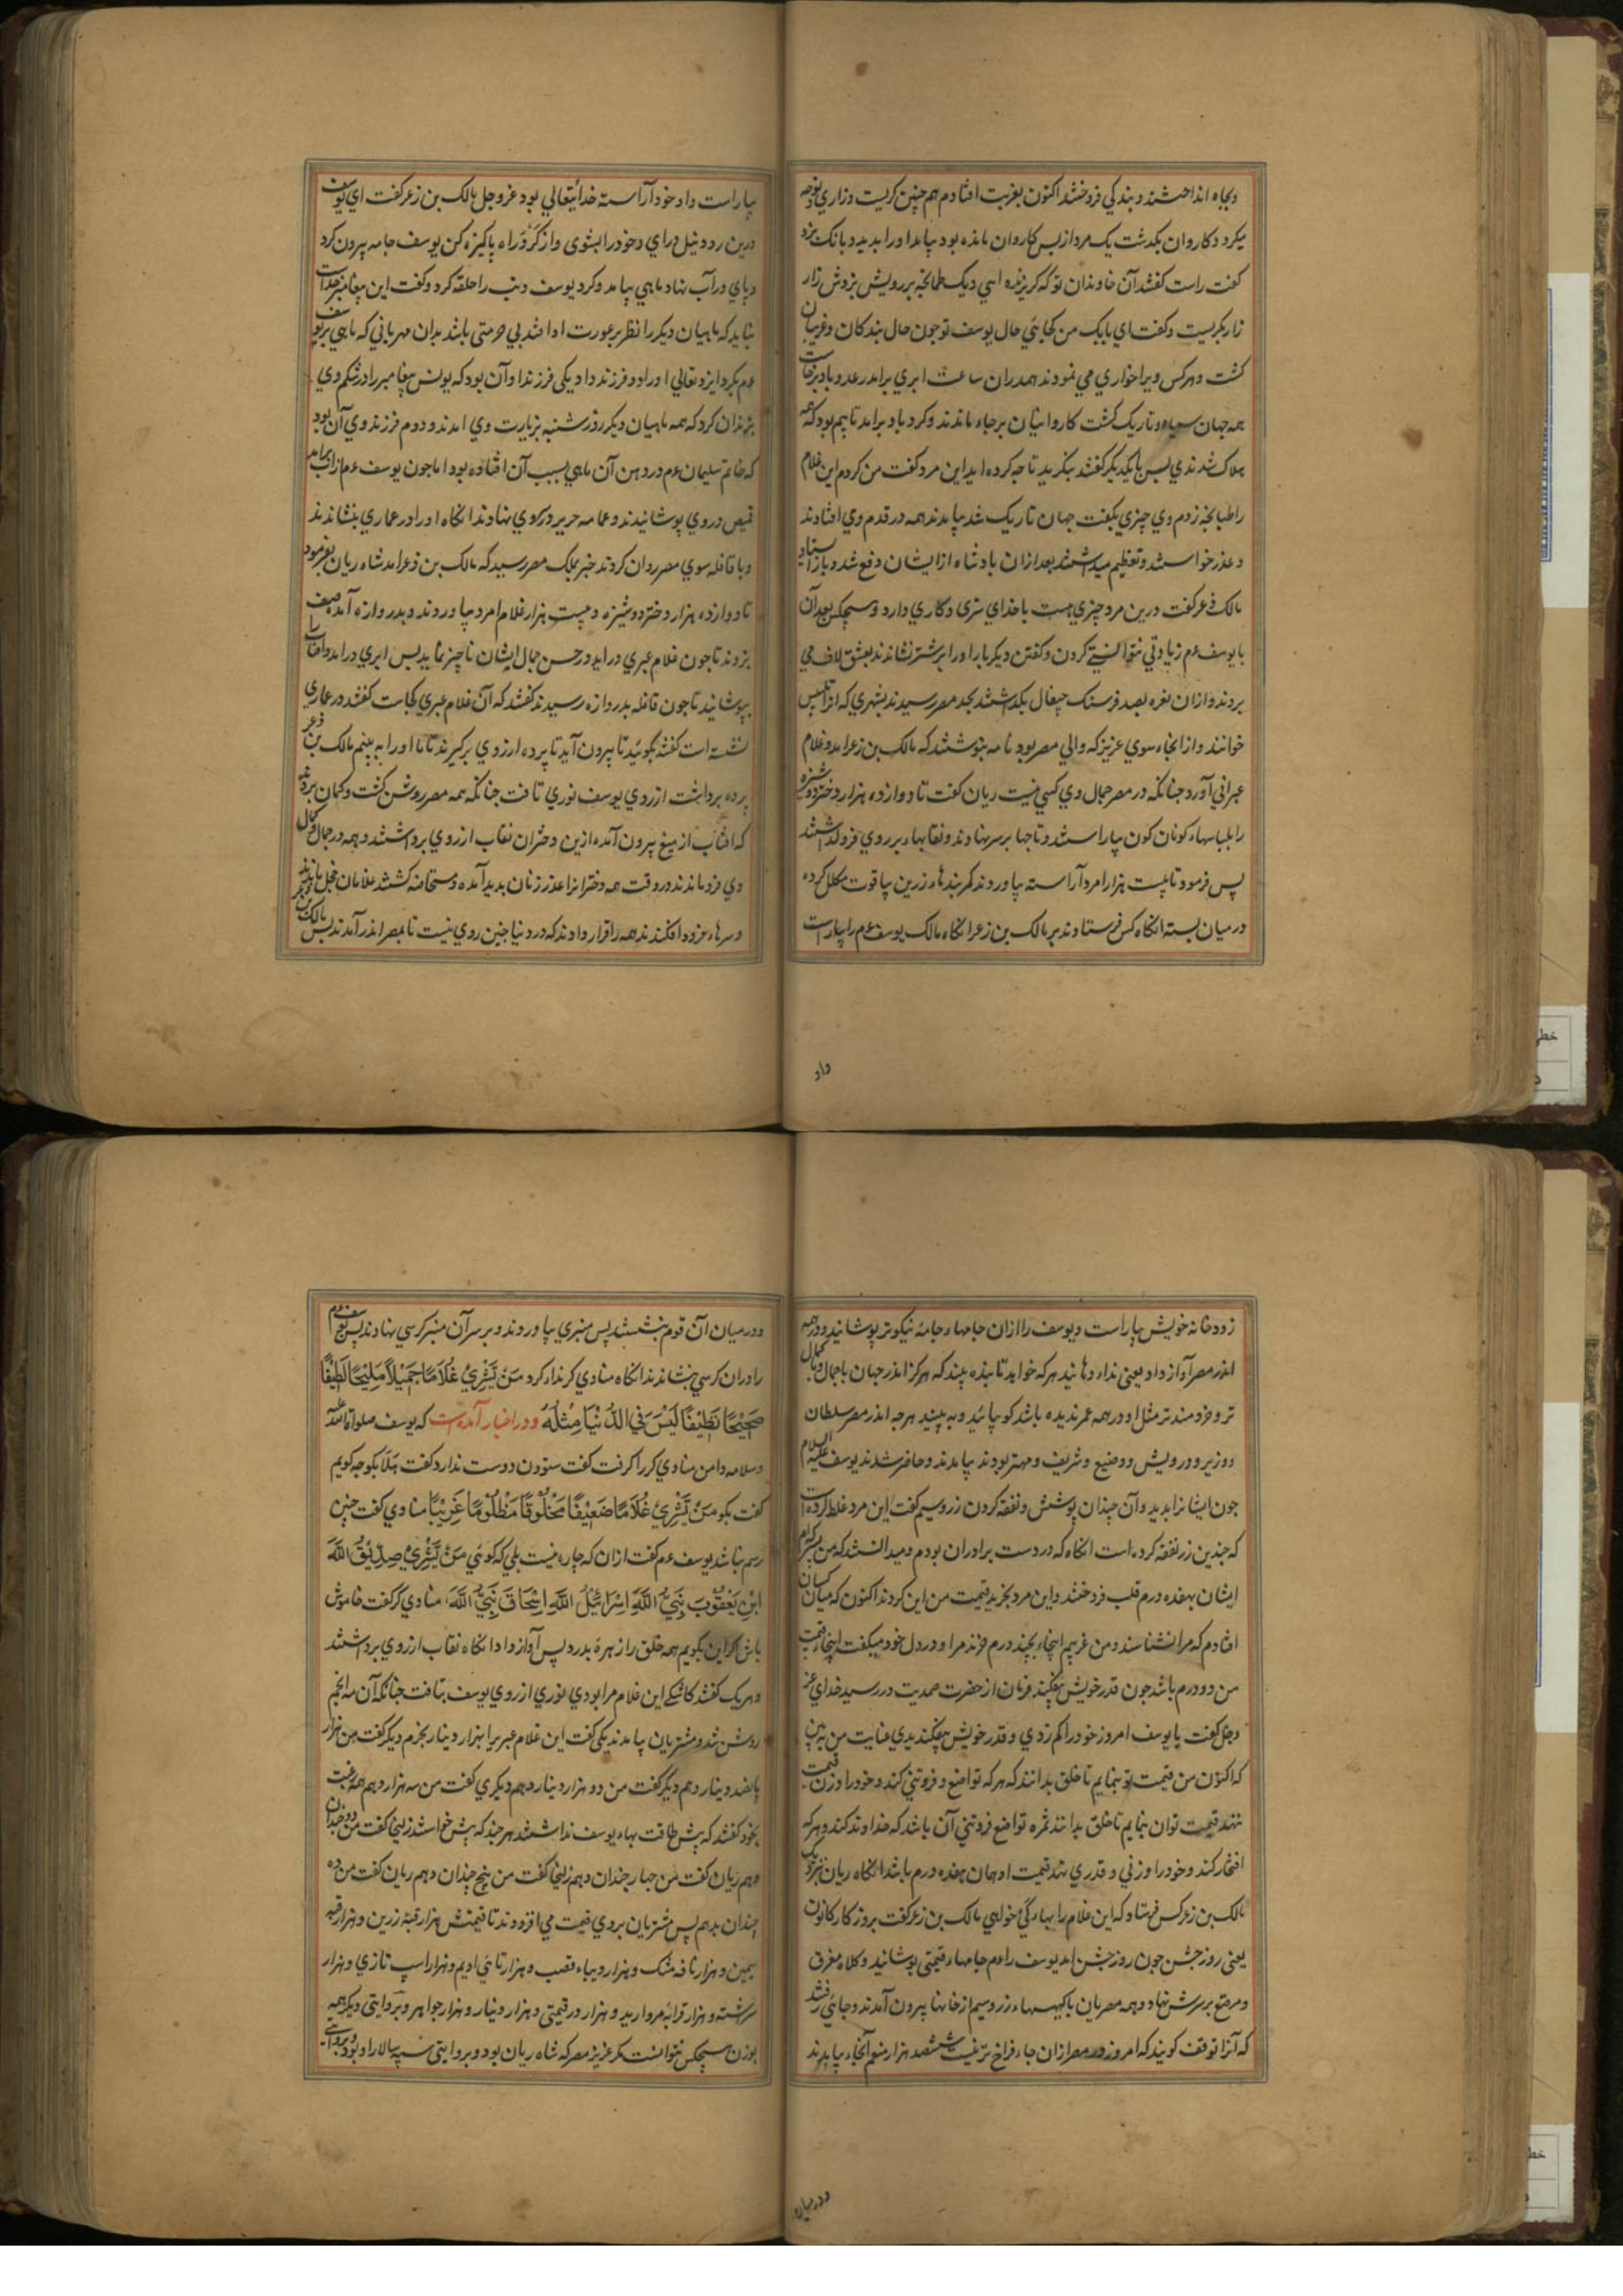 وبجاه انداختند و بندکی فروختند اکنون بغربت افتادم هم چنین کریست و زاری و نوحه
میکرد و کاروان بکذشت یک مرد از پس کاروان مانده بود بیامد او را بدید و بانک بزد
کفت راست کفتند آن خاوندان تو که کریزنده اسی و یک طمانجه بر رویش بزدش زار
زار بکریست و کفت ای بابک من کجایئی حال یوسف تو جون حال بندکان و غریبان
کشت و هر کس ویرا خواری می نمودند همدران ساعت ابری برامد رعد و باد برخاست
همه جهان سیاه و تاریک کشت کاروانیان بر جاء ماندند و کرد باد برامد تا بیم بود که همه
هلاک شدندی پس با یکدیکر کفتند بنکرید تا جه کرده اید این مرد کفت من کردم این غلام
را طبانجه زدم وی چیزی بکفت جهان تاریک شد بیامدند همه در قدم وی افتادند
و عذر خواستند و تعظیم میداشتند بعد ازان باد تباه از ایشان دفع شد و باز استاد
مالک ذعر کفت درین مرد چیزی هست با خدای سری و کاری دارد و هیچکس بعد آن
با یوسف عم زیادتی نتوانستی کردن و کفتن دیکر بار او را بر شتر نشاندند بعشق لاف می
بردند و ازان نغره بصد فرسنک جیغال بکذشتند بحد مصر رسیدند بشهری که انرا تلبیس
خوانند و از انجاء سوی عزیز که والی مصر بود نامه بنوشتند که مالک بن زعر امد و غلام
عبرانی آورد جنانکه در مصر جمال وی کسی نیست ریان کفت تا دوازده هزار دختر دوشیزه
را بلباسهاء کونان کون بیاراستند و تاجها بر سر نهادند و نقابهاء بر روی فرو کذاشتند
پس فرمود تا بیست هزار امرد آراسته بیاوردند کمربندهاء زرین بیاقوت مکلل کرده
در میان بسته انکاه کس فرستادند بر مالک بن زعر انکاه مالک یوسف عم را بیاراست
داد
بیاراست داد خود آراسته خدایتعالی بود عز و جل مالک بن زعر کفت ای یوسف
درین رود نیل درای و خود را بشوی و از کرد راه پاکیزه کن یوسف جامه بیرون کرد
و پای در آب نهاد ماهی بیامد و کرد یوسف دنب را حلقه کرد و کفت این پیغامبر خداست
نباید که ماهیان دیکر را نظر بر عورت او افتد بی حرمتی باشد بدان مهربانی که ماهی بر یوسف
عم بکرد ایزد تعالی او را دو فرزند داد یکی فرزند او آن بود که یونس پیغامبر را در شکم وی
بزندان کرد که همه ماهیان دیکر روز شنبه بزیارت وی امدند و دوم فرزند وی آن بود
که خاتم سلیمان عم در دهن آن ماهی بسبب آن افتاده بود اما جون یوسف عم از آب برامد
قمیص در وی پوشانیدند و عمامه حریر در کوی نهادند انکاه او را در عماری بنشاندند
و با قافله سوی مصر روان کردند خبر بملک مصر رسید که مالک بن ذعر امد شاه ریان بفرمود
تا دوازده هزار دختر دوشیزه و بیست هزار غلام امرد بیاوردند و بدروازه آمد صف
بزدند تا جون غلام عبری در اید در حسن جمال ایشان ناچیز نماید پس ابری در امد و آفتاب را
بپوشانید تا جون قافله بدروازه رسیدند کفتند که آن غلام عبری کجاست کفتند در عماری
نشسته است کفتند بکوئید تا بیرون آید تا پرده از روی برکیرند تا ما او را به بینم مالک بن ذعر
پرده برداشت از روی یوسف نوری تافت جنانکه همه مصر روشن کشت و کمان بردند
که افتاب از میغ بیرون آمده ازین دختران نقاب از روی برداشتند و همه در جمال کمال
وی فرو ماندند در وقت همه دخترانرا عذر زنان بدید آمده و مستحاضه کشتند غلامان خجل ماندند
و سرهاء فرود افکندند همه را اقرار دادند که در دنیا جنین روی نیست تا بمصر اندر آمدند پس مالک بن ذعر
زود خانه خویش بیاراست و یوسف را ازان جامهاء جامهٔ نیکوتر پوشانید و در همه
اندر مصر آواز داد یعنی ندا دهانید هر که خواهد تا بنده بیند که هرکز اندر جهان باجمال و باکمال
تر و خردمندتر مثل او در همه عمر ندیده باشد کو بیائید و به بینید هرجه اندر مصر سلطان
و وزیر و درویش و وضیع و شریف و مهتر بودند بیامدند و حاضر شدند یوسف علیه السلام
جون ایشانرا بدید و آن چندان پوشش و نفقه کردن زر و سیم کفت این مرد غلط کرده است
که جندین زر نفقه کرده است انکاه که در دست برادران بودم و میدانستند که من پسر کدام
ایشان بهفده درم قلب فروختند و این مرد بخرید قیمت من این کردند اکنون که میان کسان
افتادم که مرا نشناسند و من غریبم اینجاء بچند درم خزند مرا و در دل خود میکفت اینجاء قیمت
من دو درم باشد جون قدر خویش بیفکند فرمان از حضرت صمدیت در رسید خدای عز
و جل کفت یا یوسف امروز خود را کم زدی و قدر خویش بیفکندیدی عنایت من به بین
که اکنون من قیمت تو بنمایم تا خلق بدانند که هر که تواضع و فروتنی کند و خود را وزن قیمت
ننهد قیمت توان بنمایم تا خلق بدانند ثمره تواضع فروتنی آن باشد که خداوند کند و هر که
افتخار کند و خود را وزنی و قدری نهد قیمت او همان هفده درم باشد انکاه ریان بنزدیک
مالک بن زعر کس فرستاد که این غلام را بهاء کئ خواهی مالک بن زعر کفت بروز کار کانون
یعنی روز جشن جون روز جشن امد یوسف را عم جامهاء قیمتی پوشانید و کلاه مغرق
و مرصع بر سرش نهاد و همه مصریان با کیسهاء زر و سیم از خانها بیرون آمدند و جائی رفتند
که آنرا توقف کویند که امروز در مصر ازان جاء فراخ تر نیست ششصد هزار منعم آنجاء بیامدند
و در میان
و در میان آن قوم بنشستند پس منبری بیاوردند و بر سر آن منبر کرسی نهادند پس یوسف عم
را دران کرسی بنشاندند انکاه منادی کر ندا کرد مَنْ یَشْتَرِیْ غُلَامًا جَمِیْلًا مَلِیْحًا لَطِیْفًا
صَحِیْحًا نَظِیْفًا لَیْسَ فِی الدُّنْیَا مِثْلُهُ و در اخبار آمدست که یوسف صلواة الله علیه
و سلامه دامن منادی کر را کرفت کفت ستودن دوست ندارد کفت هلا بکو جه کویم
کفت بکو مَنْ یَشْتَرِیْ غُلَامًا ضَعِیْفًا مَخْلُوْقًا مَظْلُوْمًا غَرِیْبًا منادی کفت جنین
رسم نباشد یوسف عم کفت ازان که جاره نیست بلی که کوئی مَنْ یَشْتَرِیْ صِدِّیْقُ اللّٰهَ
ابْنِ یَعْقُوْبَ نَبِیُّ اللّٰهَ اِسْرَائِیْلُ اللّٰهَ اِسْحَاقَ نَبِیُّ اللّٰهَ منادی کر کفت خاموش
باش اکر این بکویم همه خلق را زهره بدرد پس آواز داد انکاه نقاب از روی برداشتند
و هریک کفتند کاشکی این غلام مرا بودی نوری از روی یوسف بتافت جنانکه آن مه انجم
روشن شد و مشتریان بیامدند یکی کفت این غلام عبریرا بهزار دینار بخرم دیکر کفت من هزار
پانصد دینار دهم دیکر کفت من دو هزار دینار دهم دیکری کفت من سه هزار دهم همه رغبت
بخود کفتند که پش طاقت بهاء یوسف نداشتند هر جند که پش خواستند زلیخا کفت من دو چندان
دهم ریان کفت من جهار چندان دهم زلیخا کفت من پنج چندان دهم ریان کفت من ده
چندان بدهم پس مشتریان بروی قیمت می افزودند تا قیمتش هزار قبهٔ زرین و هزار قبه
سیمین و هزار نافه مشک و هزار دیباء قصب و هزار تائی ادیم و هزار اسپ تازی و هزار
سرشته و هزار قرابهٔ مروارید و هزار در قیمتی و هزار دینار و هزار جواهر و بروایتی دیکر همه
بوزن هیچکس نتوانست مکر عزیز مصر که شاه ریان بود و بروایتی سپه سالار او بود و بروایتی